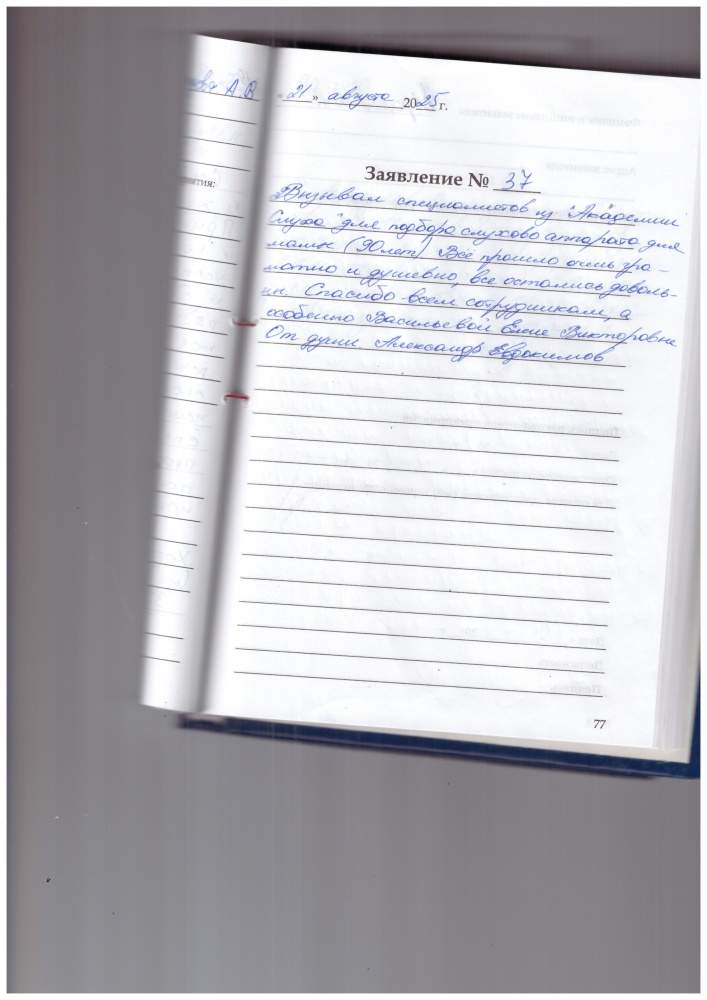 А.В
« 21 » августа 2025 г.
Заявление № 37
Вызывал специалистов из "Академии
Слуха" для подбора слухово аппарата для
мамы (90 лет) Всё прошло очень гра-
мотно и душевно, все остались доволь-
ны. Спасибо всем сотрудникам, а
особенно Васильевой Елене Викторовне
От души Александр Евдокимов
77